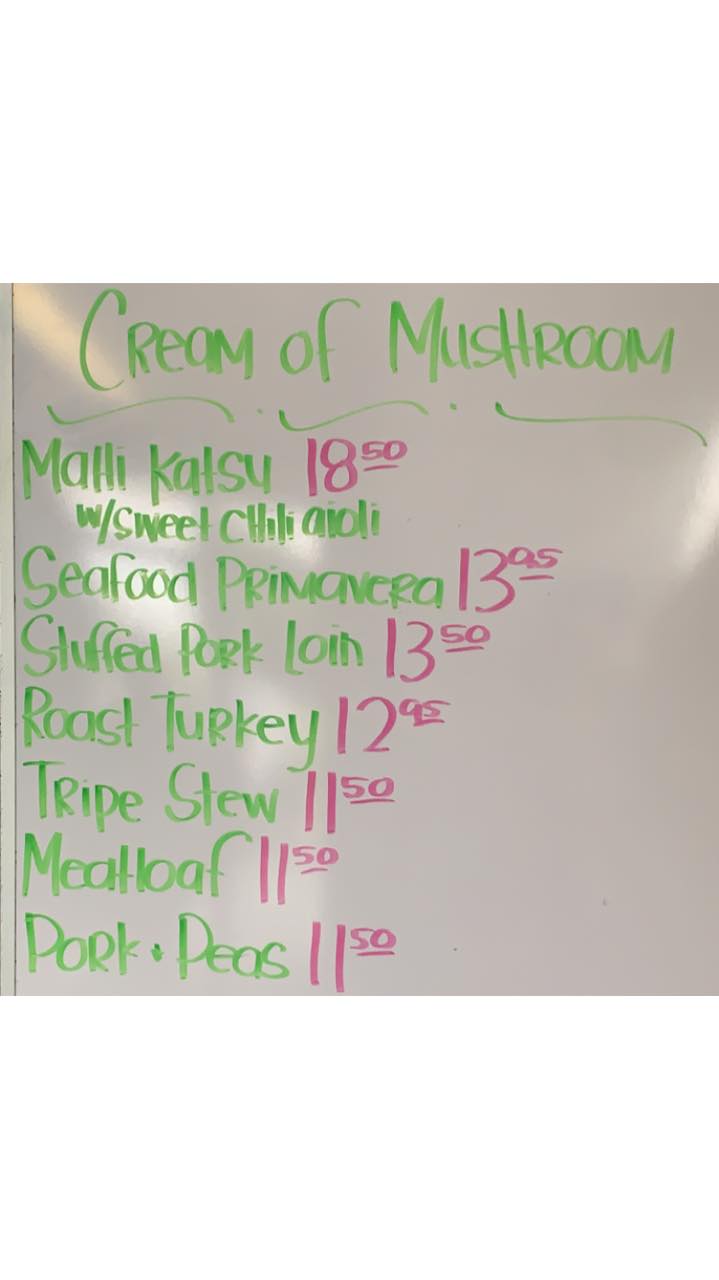 Cream of Mushroom
Mahi Katsu 18 50
w/sweet chili aioli
Seafood Primavera 13 95
Stuffed Pork Loin 13 50
Roast Turkey 12 95
Tripe Stew 11 50
Meatloaf 11 50
Pork + Peas 11 50